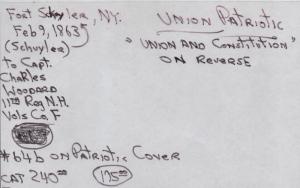 Fort Schuyler, N.Y.
Feb 9, 1863
(Schuyler)
To Capt.
Charles
Woodard
11th Reg N.H.
Vols Co. F
UNION PATRIOTIC
"UNION AND CONSTITUTION"
ON REVERSE
#64b ON PATRIOTIC COVER
CAT 240.00
175.00